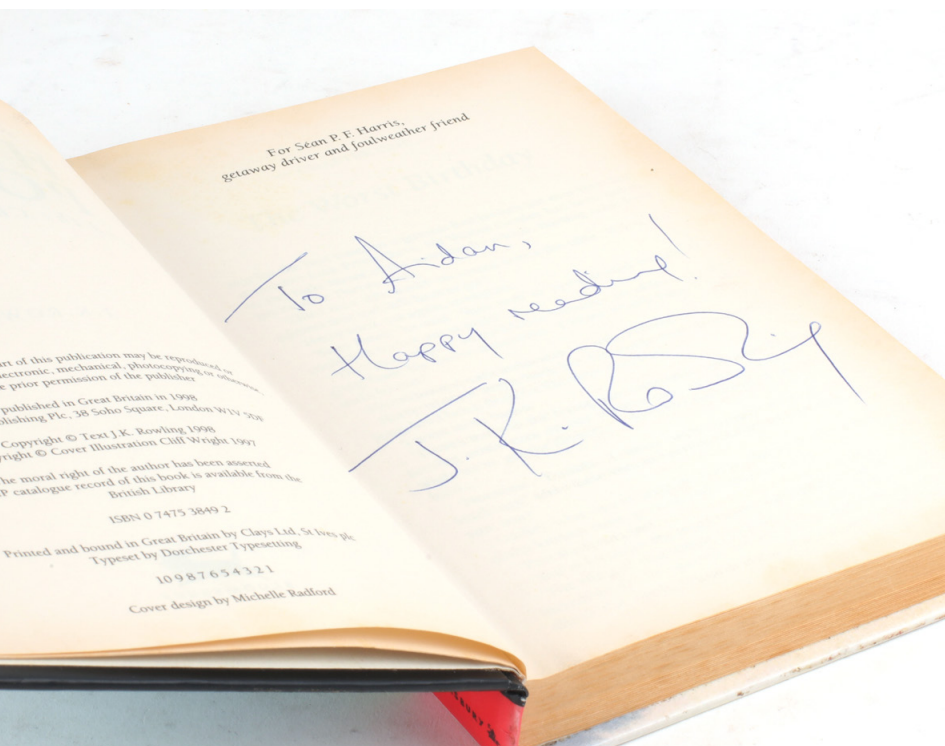 art of this publication may be reproduced or
ectronic, mechanical, photocopying or otherwise
e prior permission of the publisher
published in Great Britain in 1998
blishing Plc, 38 Soho Square, London W1V 5DF
Copyright © Text J.K. Rowling 1998
yright © Cover Illustration Cliff Wright 1997
he moral right of the author has been asserted
P catalogue record of this book is available from the
British Library
ISBN 0 7475 3849 2
Printed and bound in Great Britain by Clays Ltd, St Ives plc
Typeset by Dorchester Typesetting
10 9 8 7 6 5 4 3 2 1
Cover design by Michelle Radford
For Seán P. F. Harris,
getaway driver and foulweather friend
To Aidan,
Happy reading!
J.K. Rowling